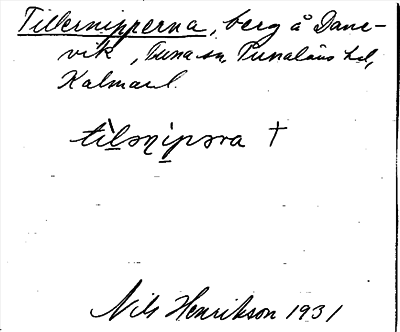 Tillernipperna, berg å Dane-
vik, Tuna sn Tunaläns hd,
Kalmar l.
tìlənìpəra †
Nils Henrikson 1931